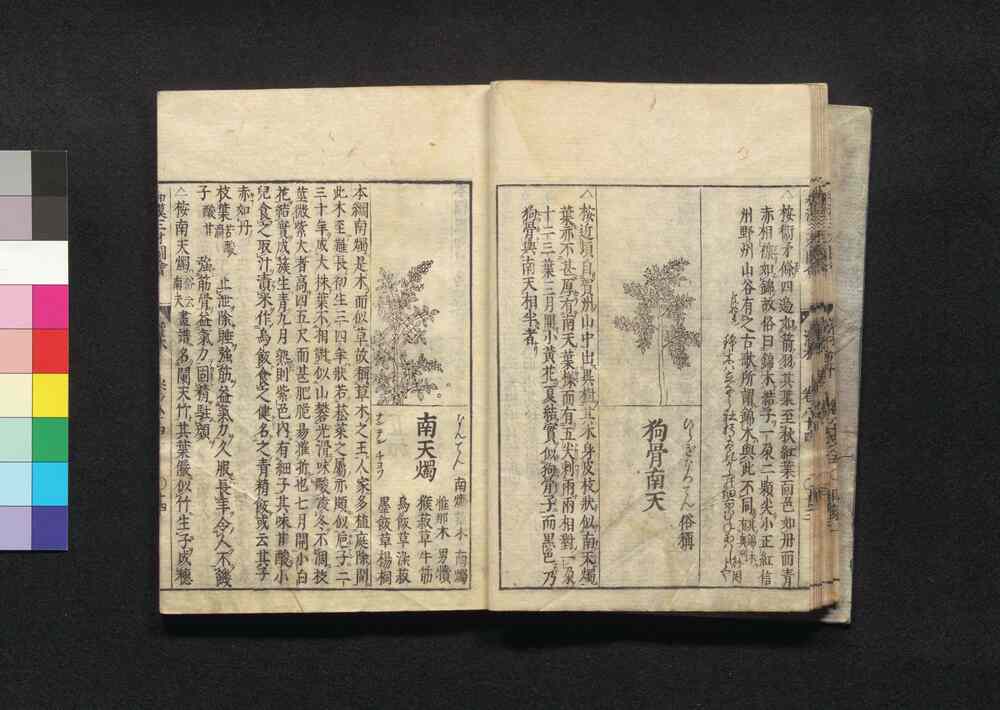 △按衞矛條四邊如箭羽其葉至秋紅葉而色如丹而青
赤相襍如錦故俗曰錦木結子一朶二顆尖小正紅信
州野州山谷有之古歌所謂錦木與此不同
狗骨南天
俗稱
△按近頃自賀州山中出異種其木身皮枝狀似南天燭
葉亦不甚厚而南天葉樣而有五尖刺兩兩相對一朶
十一二葉三月開小黃花夏結實似狗骨子而黑色乃
狗骨與南天相半者
南天燭
なんてん
南燭
男續
猴菽草
牛筋
烏飯草
染菽
墨飯草
楊桐
ナン テン チヨッ
本綱南燭是木而似草故稱草木之王人家多植庭除間
此木至難長初生三四年狀若菘菜之屬亦頗似巵子二
三十年成大株葉不相對似山礬光滑味酸澁冬不凋枝
莖微紫大者高四五尺而甚肥脆易摧折也七月開小白
花結實成簇生青九月熟則紫色內有細子其味甘酸小
兒食之取汁漬米作烏飯食之健名之青精飯或云其子
赤如丹
枝葉
苦酸澁
止泄除睡強筋益氣力久服長年令人不饑
子
酸甘
強筋骨益氣力固精駐顏
△按南天燭
俗云南天
畫譜名闌天竹其葉儼似竹生子成穗